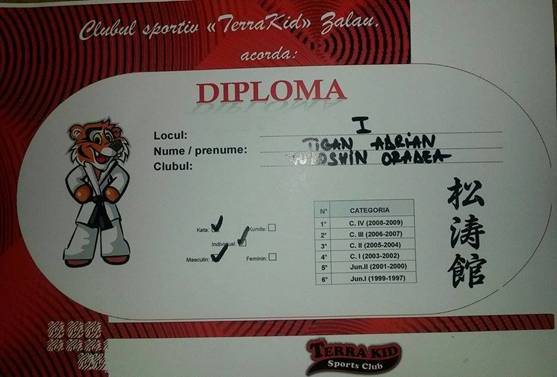 Clubul sportiv «TerraKid» Zalau,
acorda:
DIPLOMA
Locul: I
Nume / prenume: TIGAN ADRIAN
Clubul: ORADEA
Kata: Kumite:
Individual:
Masculin: Feminin:
N° CATEGORIA
1° C. IV (2008-2009)
2° C. III (2006-2007)
3° C. II (2005-2004)
4° C. I (2003-2002)
5° Jun.II (2001-2000)
6° Jun.I (1999-1997)
松濤館
TERRA KID
Sports Club